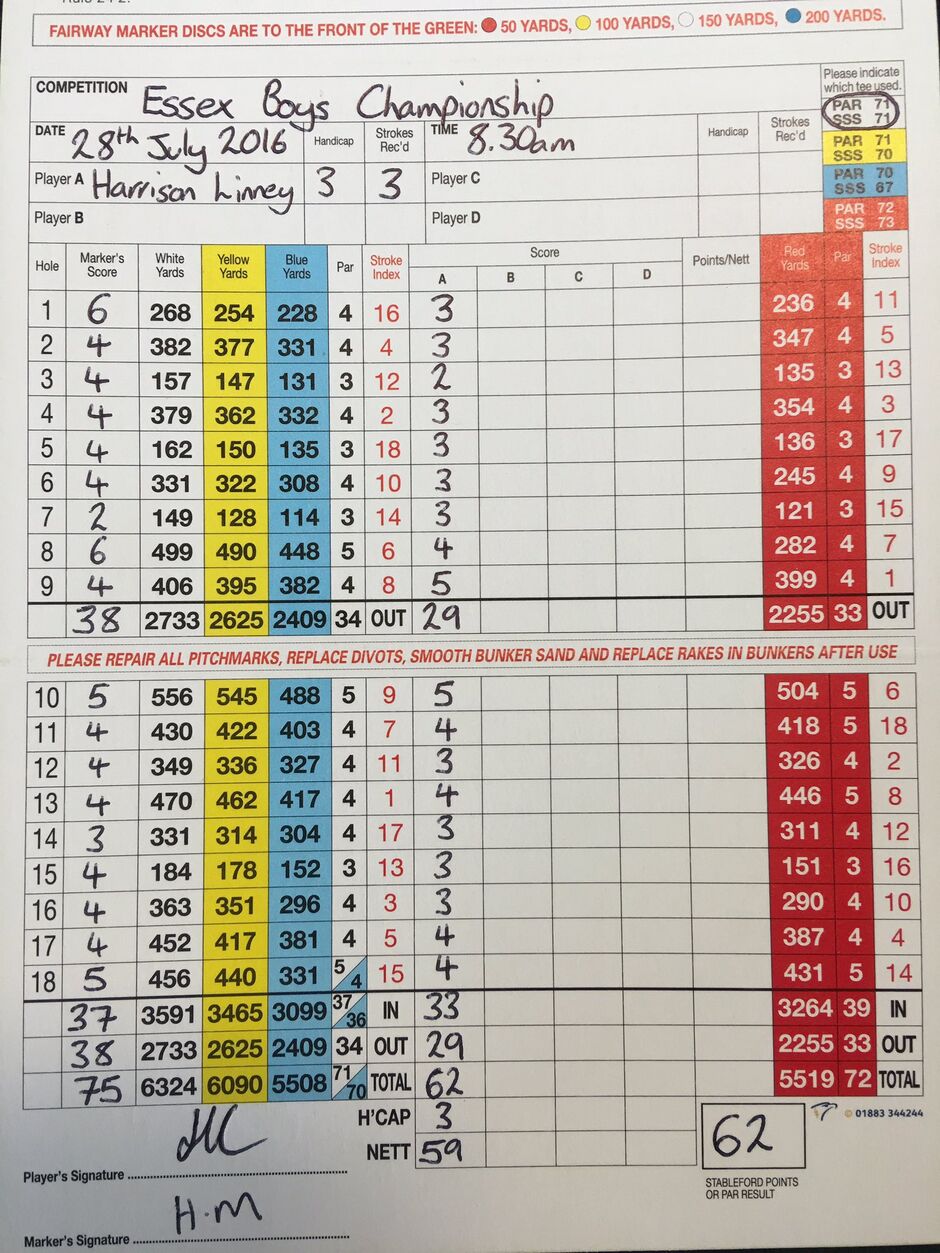 FAIRWAY MARKER DISCS ARE TO THE FRONT OF THE GREEN: 50 YARDS, 100 YARDS, 150 YARDS, 200 YARDS.
COMPETITION Essex Boys Championship Please indicate which tee used.
PAR 71 SSS 71
DATE 28th July 2016 Handicap Strokes Rec'd TIME 8.30am Handicap Strokes Rec'd PAR 71 SSS 70
Player A Harrison Linney 3 3 Player C PAR 70 SSS 67
Player B Player D PAR 72 SSS 73
Hole Marker's Score White Yards Yellow Yards Blue Yards Par Stroke Index Score A B C D Points/Nett Red Yards Par Stroke Index
1 6 268 254 228 4 16 3 236 4 11
2 4 382 377 331 4 4 3 347 4 5
3 4 157 147 131 3 12 2 135 3 13
4 4 379 362 332 4 2 3 354 4 3
5 4 162 150 135 3 18 3 136 3 17
6 4 331 322 308 4 10 3 245 4 9
7 2 149 128 114 3 14 3 121 3 15
8 6 499 490 448 5 6 4 282 4 7
9 4 406 395 382 4 8 5 399 4 1
38 2733 2625 2409 34 OUT 29 2255 33 OUT
PLEASE REPAIR ALL PITCHMARKS, REPLACE DIVOTS, SMOOTH BUNKER SAND AND REPLACE RAKES IN BUNKERS AFTER USE
10 5 556 545 488 5 9 5 504 5 6
11 4 430 422 403 4 7 4 418 5 18
12 4 349 336 327 4 11 3 326 4 2
13 4 470 462 417 4 1 4 446 5 8
14 3 331 314 304 4 17 3 311 4 12
15 4 184 178 152 3 13 3 151 3 16
16 4 363 351 296 4 3 3 290 4 10
17 4 452 417 381 4 5 4 387 4 4
18 5 456 440 331 5/4 15 4 431 5 14
37 3591 3465 3099 37/36 IN 33 3264 39 IN
38 2733 2625 2409 34 OUT 29 2255 33 OUT
75 6324 6090 5508 71/70 TOTAL 62 5519 72 TOTAL
H'CAP 3 © 01883 344244
NETT 59 62
Player's Signature STABLEFORD POINTS
OR PAR RESULT
H.M
Marker's Signature